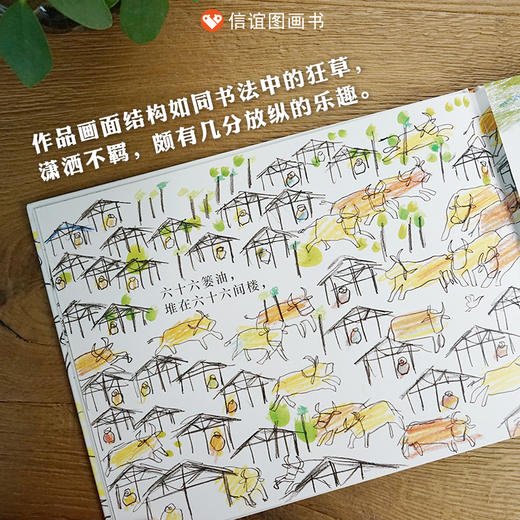 信谊图画书
作品画面结构如同书法中的狂草，
潇洒不羁，颇有几分放纵的乐趣。
六十六篓油，
堆在六十六间楼，